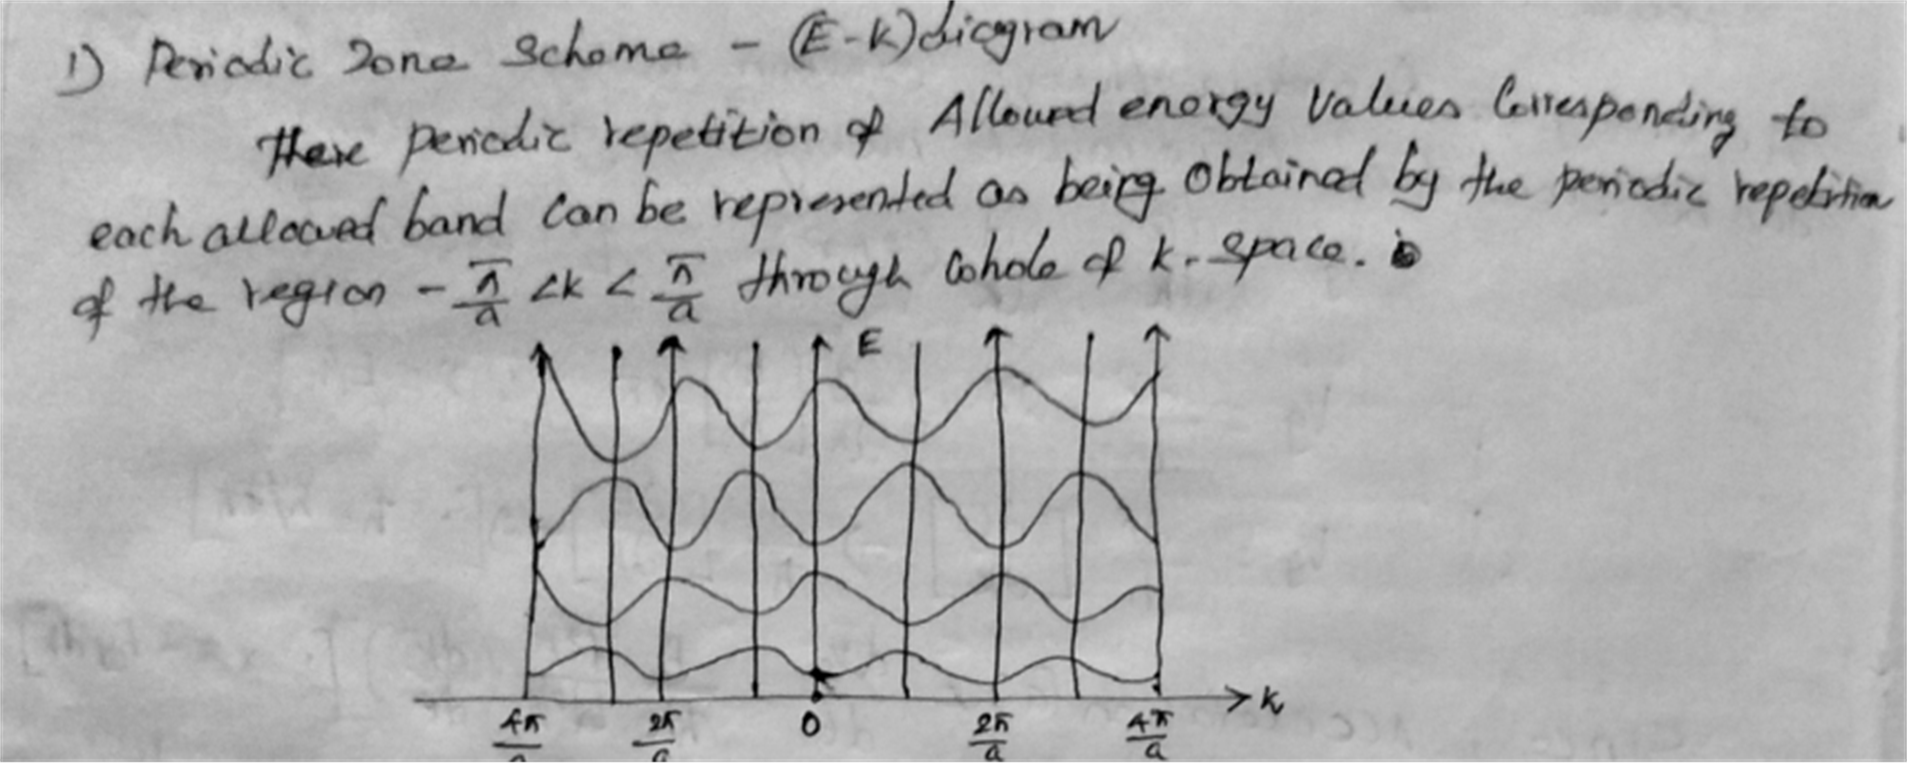 1) Periodic Zone Scheme - (E-K) diagram
There periodic repetition of Allowed energy values Corresponding to
each allowed band can be represented as being obtained by the periodic repetition
of the region - π/a < k < π/a through whole of k-space.
E
k
4π/a 2π/a 0 2π/a 4π/a